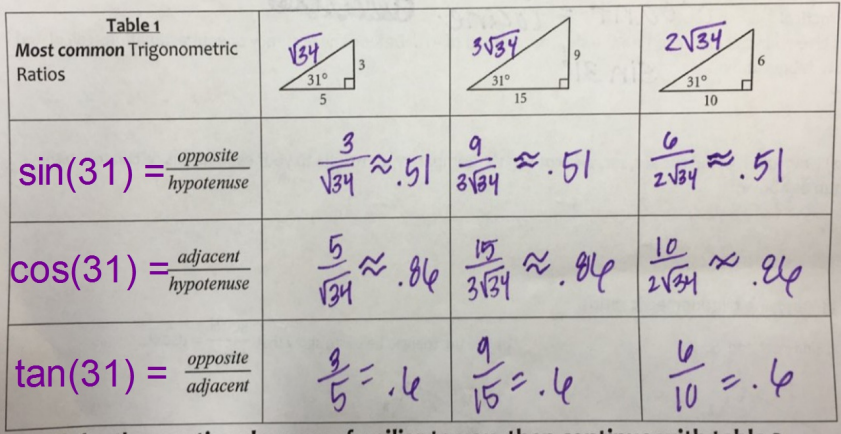 Table 1
Most common Trigonometric
Ratios
√34
3
31°
5
3√34
9
31°
15
2√34
6
31°
10
sin(31) = opposite/hypotenuse
3/√34 ≈ .51
9/3√34 ≈ .51
6/2√34 ≈ .51
cos(31) = adjacent/hypotenuse
5/√34 ≈ .86
15/3√34 ≈ .86
10/2√34 ≈ .86
tan(31) = opposite/adjacent
3/5 = .6
9/15 = .6
6/10 = .6